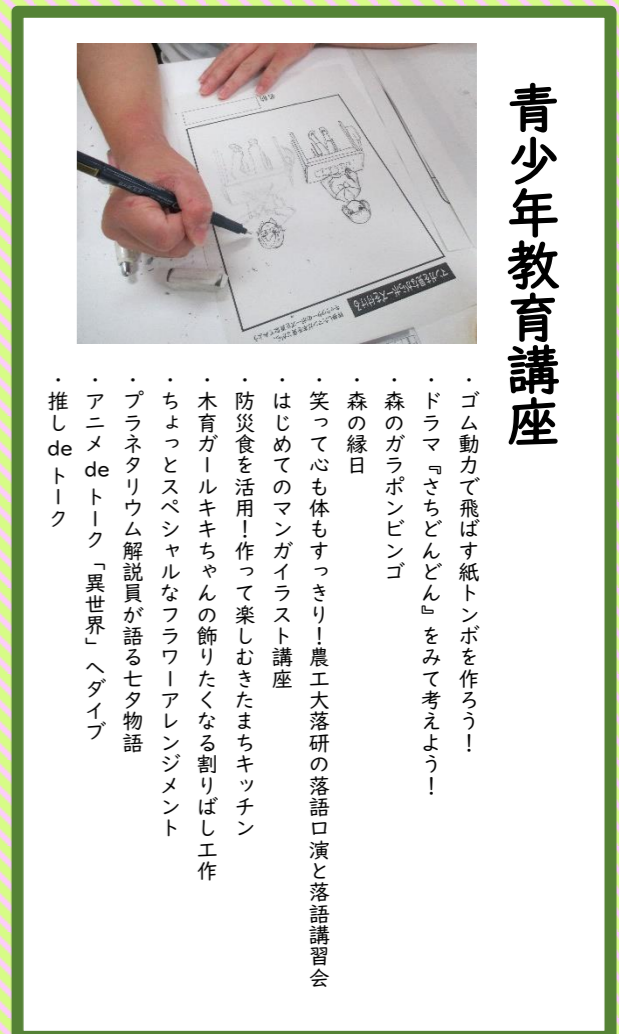 青少年教育講座
・ゴム動力で飛ばす紙トンボを作ろう！
・ドラマ『さちどんどん』をみて考えよう！
・森のガラポンビンゴ
・森の縁日
・笑って心も体もすっきり！農工大落研の落語口演と落語講習会
・はじめてのマンガイラスト講座
・防災食を活用！作って楽しむきたまちキッチン
・木育ガールキキちゃんの飾りたくなる割りばし工作
・ちょっとスペシャルなフラワーアレンジメント
・プラネタリウム解説員が語る七夕物語
・アニメ de トーク「異世界」へダイブ
・推し de トーク